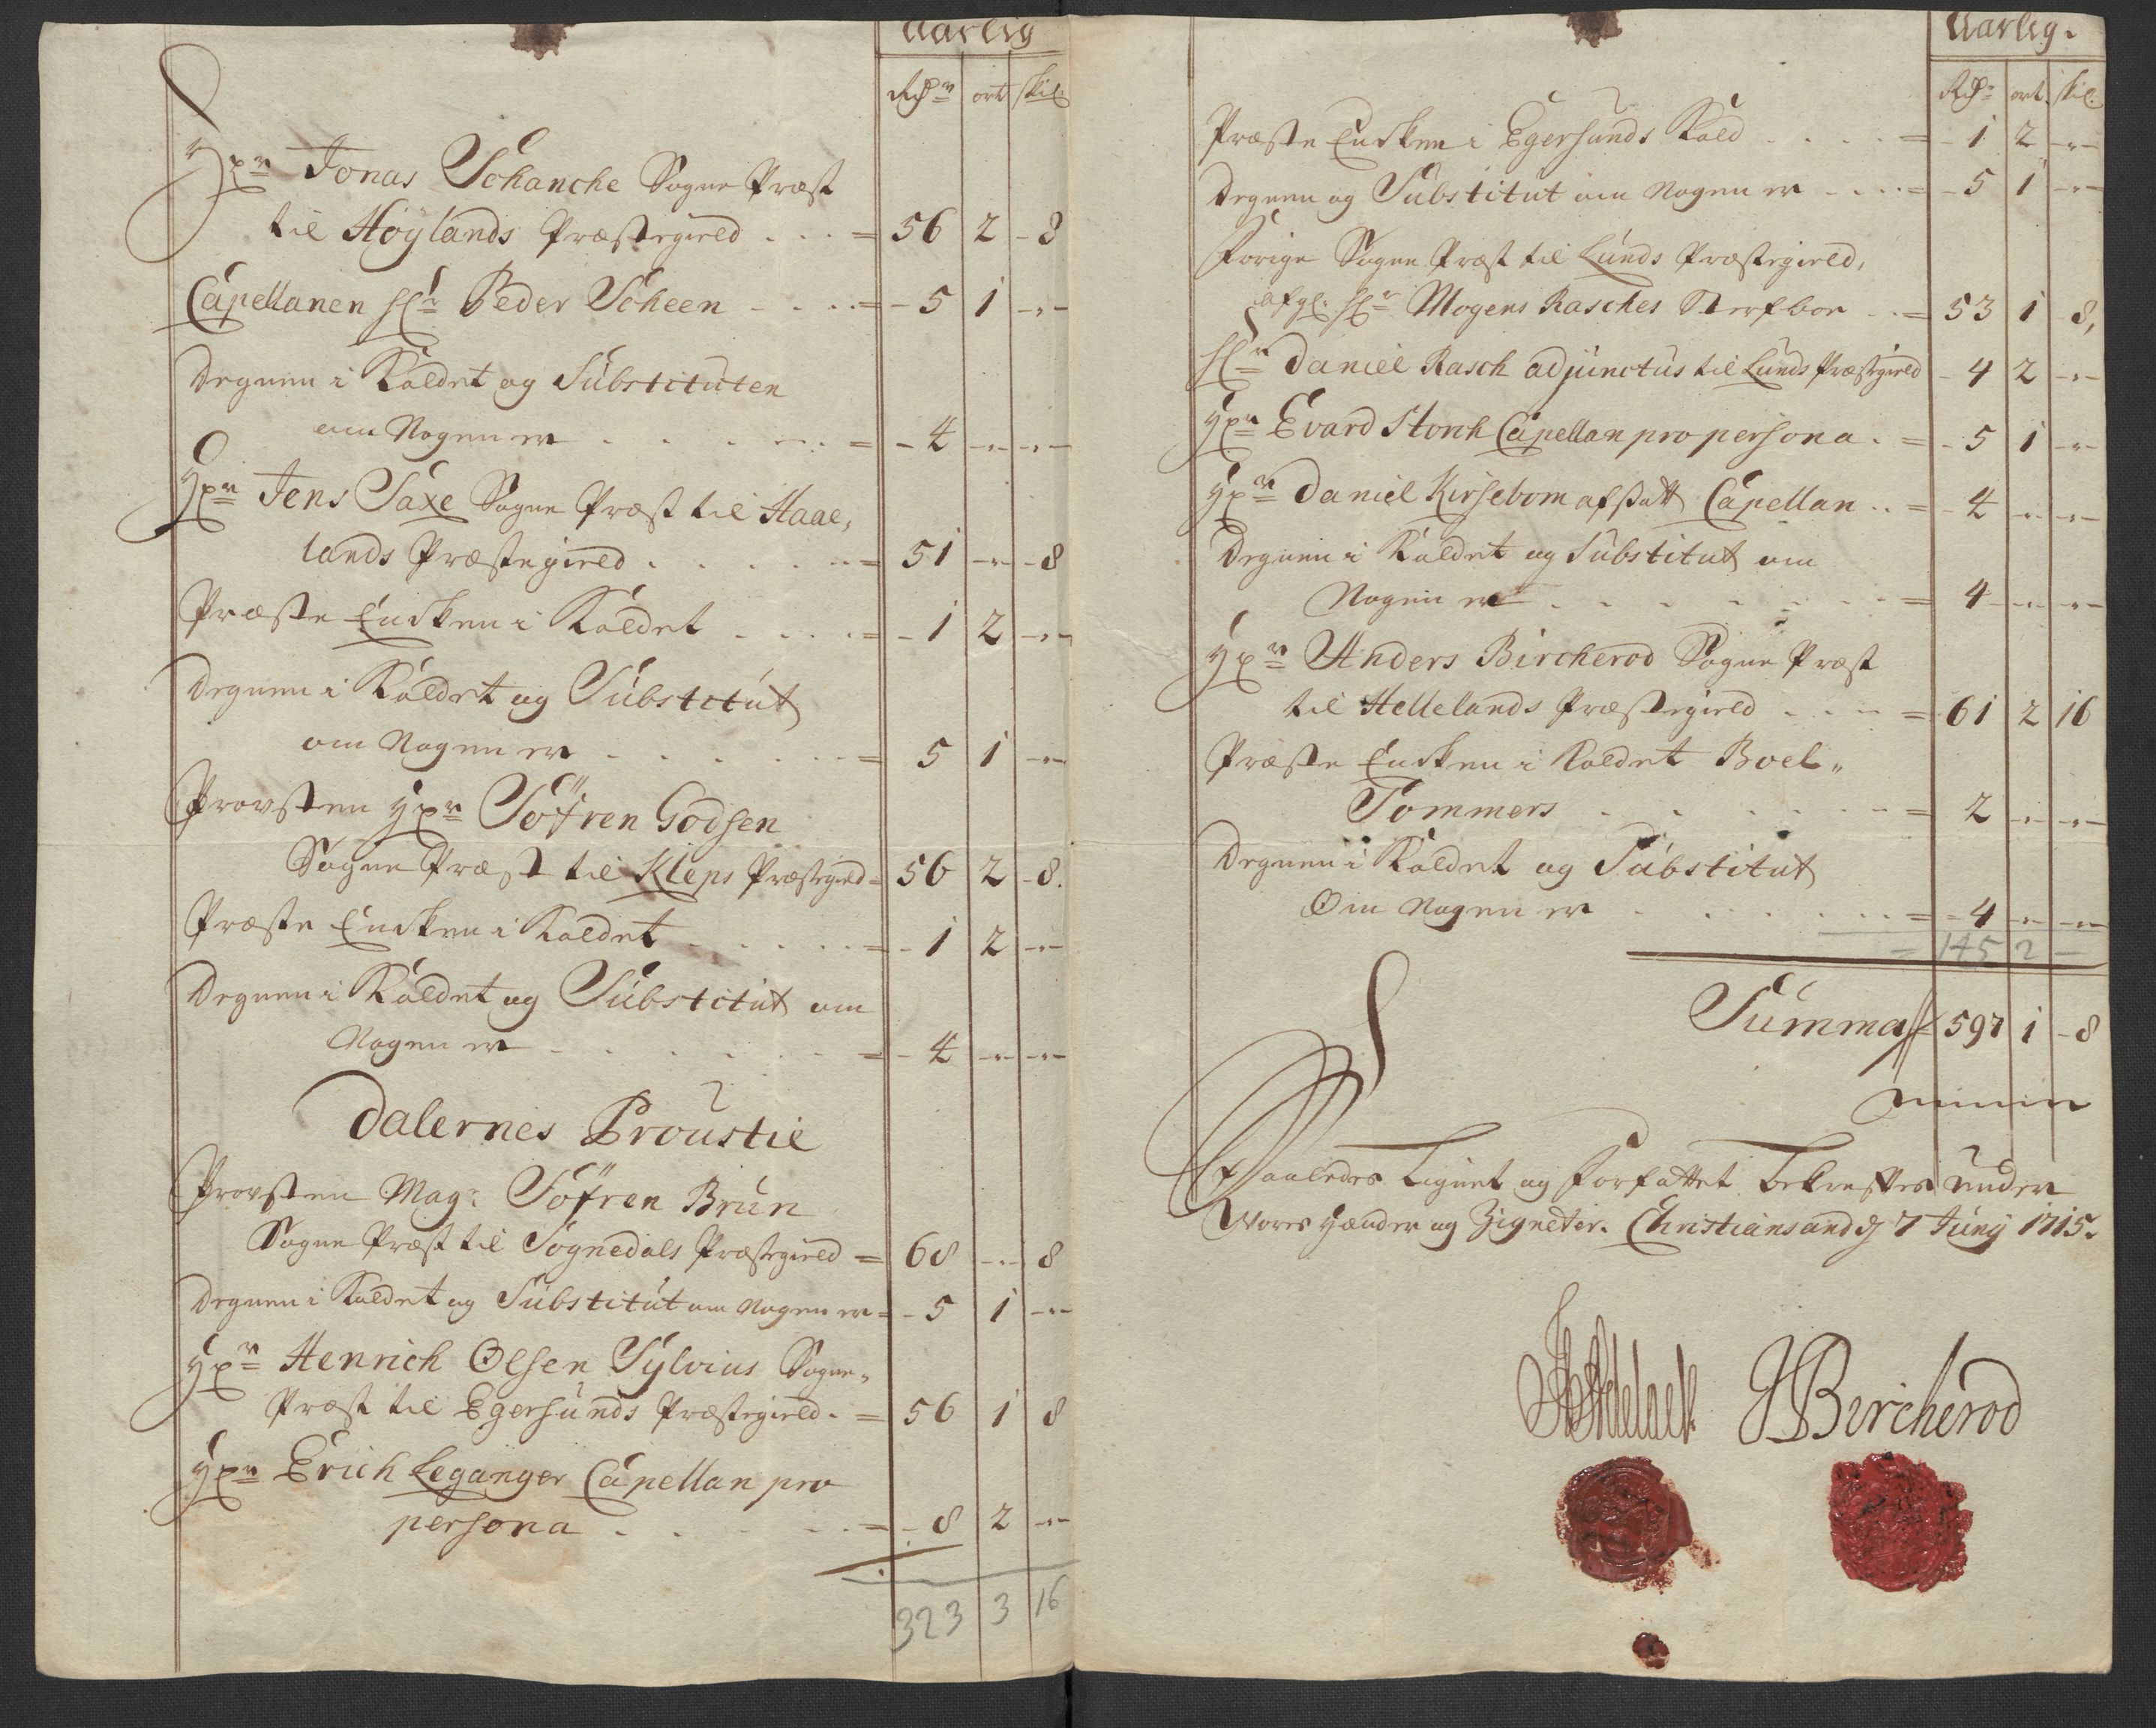 Aarlig
Rdr ort skil:
Hr Jonas Schanche Sogne Præst
til Høylands Præstegield . . . = 56 2 - 8
Capellanen Hr Peder Scheen - . . . = - 5 1 - " -
Degnen i Kaldet og Substituten
om Nogen er . . . . . = - 4 - " - - " -
Hr Jens Saxe Sogne Præst til Haae,
lands Præstegield . . . . . = 51 - " - - 8
Præste Enchen i Kaldet . . . . = - 1 2 - " -
Degnen i Kaldet og Substitut
om Nogen er . . . . . . = 5 1 - " -
Provsten Hr Söfren Godsen
Sogne Præst til Kleps Præstegield = 56 2 - 8.
Præste Enchen i Kaldet . . . . . = - 1 2 - " -
Degnen i Kaldet og Substitut om
Nogen er . . . . . . = - 4 - " - - " -
Dalernes Proustie
Provsten Mag: Söfren Brun
Sogne Præst til Sognedals Præstegield = 68 - " - 8
Degnen i Kaldet og Substitut om Nogen er = - 5 1 - " -
Hr Henrich Olsen Sylvius Sogne,
Præst til Egersunds Præstegield . = 56 1 8
Hr Erich Leganger Capellan pro
persona . . . . . = - 8 2 - " -
323 3 16
Aarlig.
Rdr ort. skil.
Præste Enchen i Egersunds Kald . . . . = - 1 2 - " -
Degnen og Substitut om Nogen er . . . . = - 5 1 - " -
Forige Sogne Præst til Lunds Præstegield,
afgl: Hr Mogens Rasches Sterfboe . . = 53 1 8,
Hr Daniel Rasch adjunctus til Lunds Præstgield - 4 2 - " -
Hr Evard Stork Capellan pro persona . = - 5 1 - " -
Hr Daniel Kirsebom afsatt Capellan . . = - 4 - " - - " -
Degnen i Kaldet og Substitut om
Nogen er . . . . . . . = 4 - " - - " -
Hr Anders Bircherod Sogne Præst
til Hellelands Præstegield . . . = 61 2 16
Præste Enchen i Kaldet Boel"
Tommers . . . . . . = 2 - " - - " -
Degnen i Kaldet og Substitut
Om Nogen er . . . . . . . = - 4 - " - - " -
= 145 2 -
Summa = 597 1 - 8
Saaledes Lignet og Forfattet Bekreftes under
Vores Hænder og Zigneter. Christiansand d 7 Junij 1715.
JBircherod